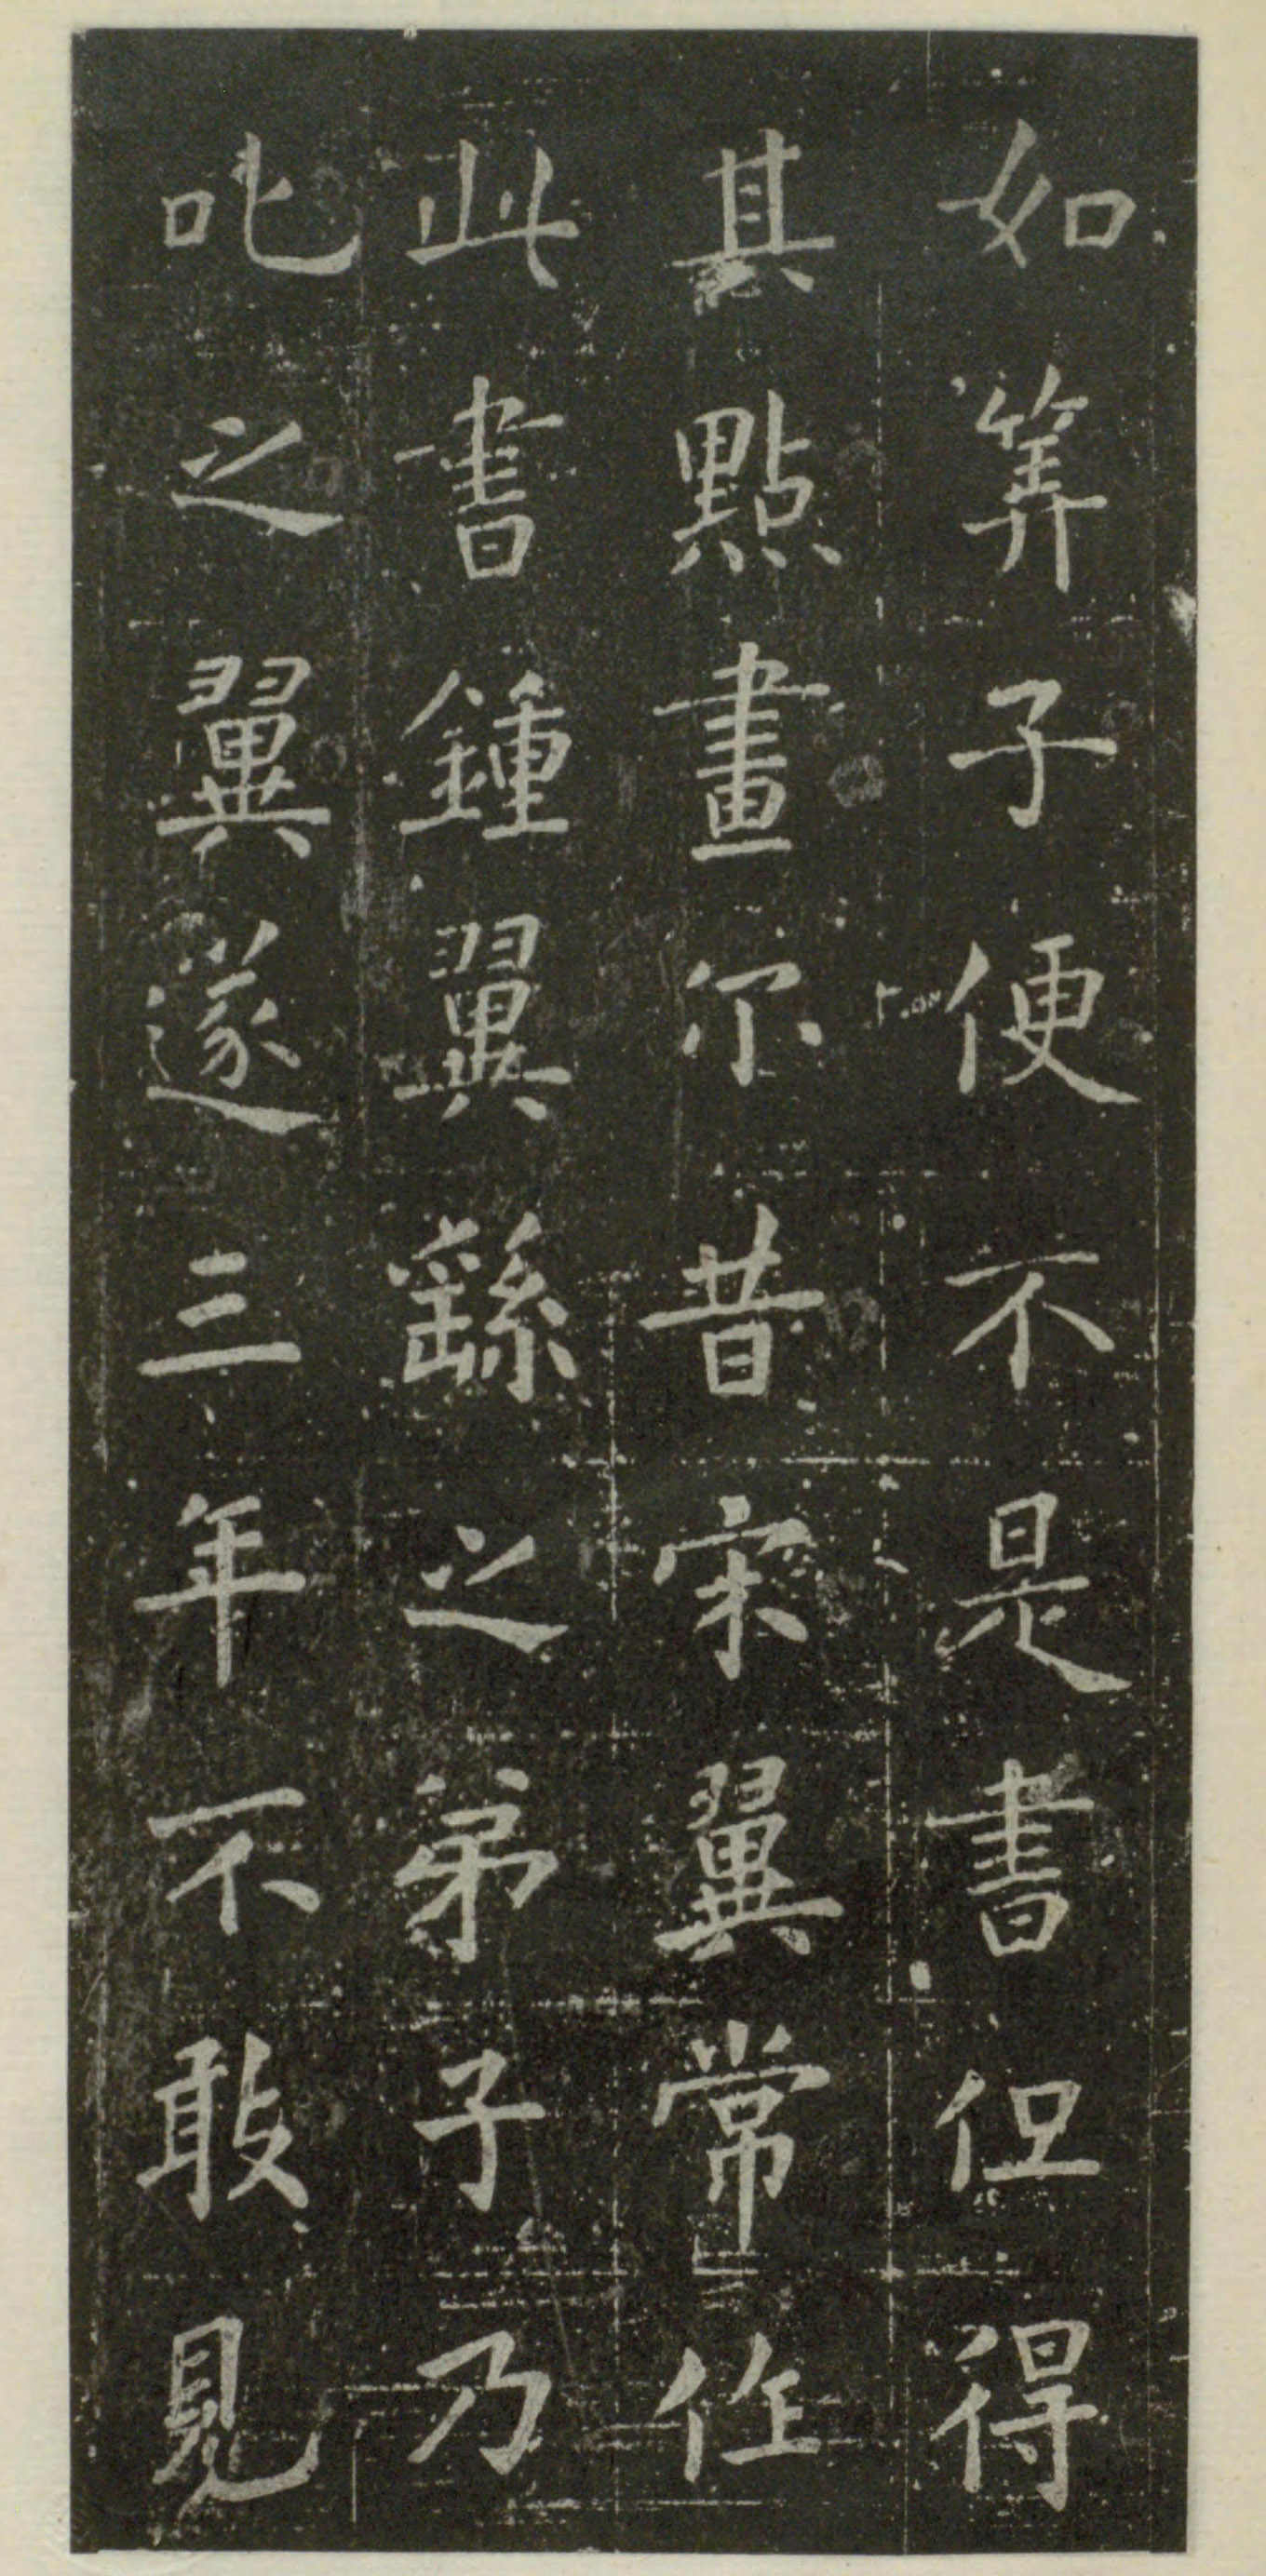 如筭子便不是書但得
其點畫尔昔宋翼常作
此書鍾翼繇之弟子乃
叱之翼遂三年不敢見